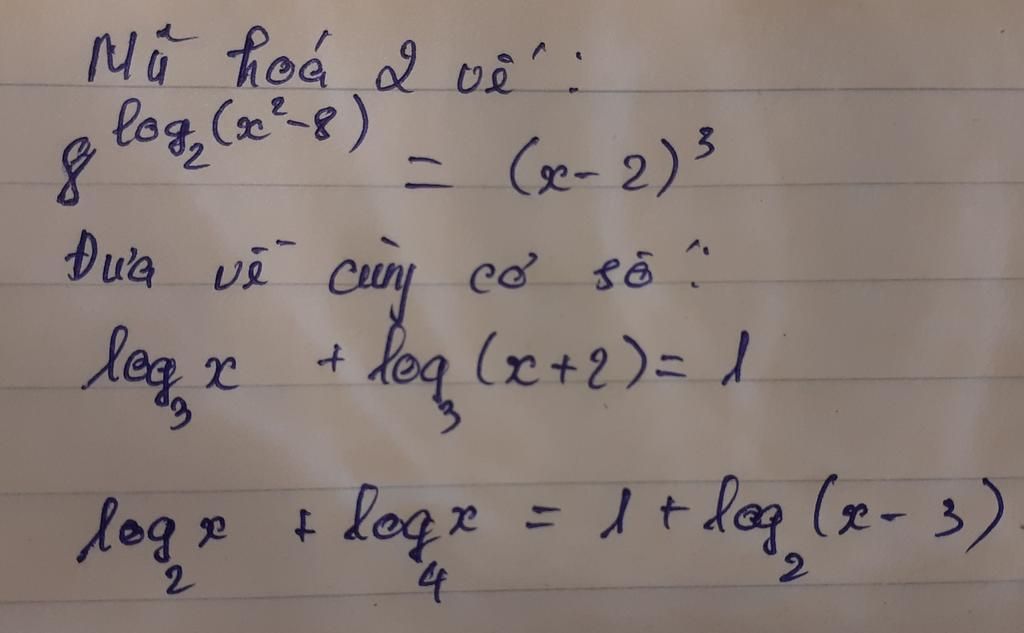 Mũ hoá 2 vế :
8^log₂(x²-8) = (x-2)³
Đưa về cùng cơ số :
log₃x + log₃(x+2) = 1
log₂x + log₄x = 1 + log₂(x-3)